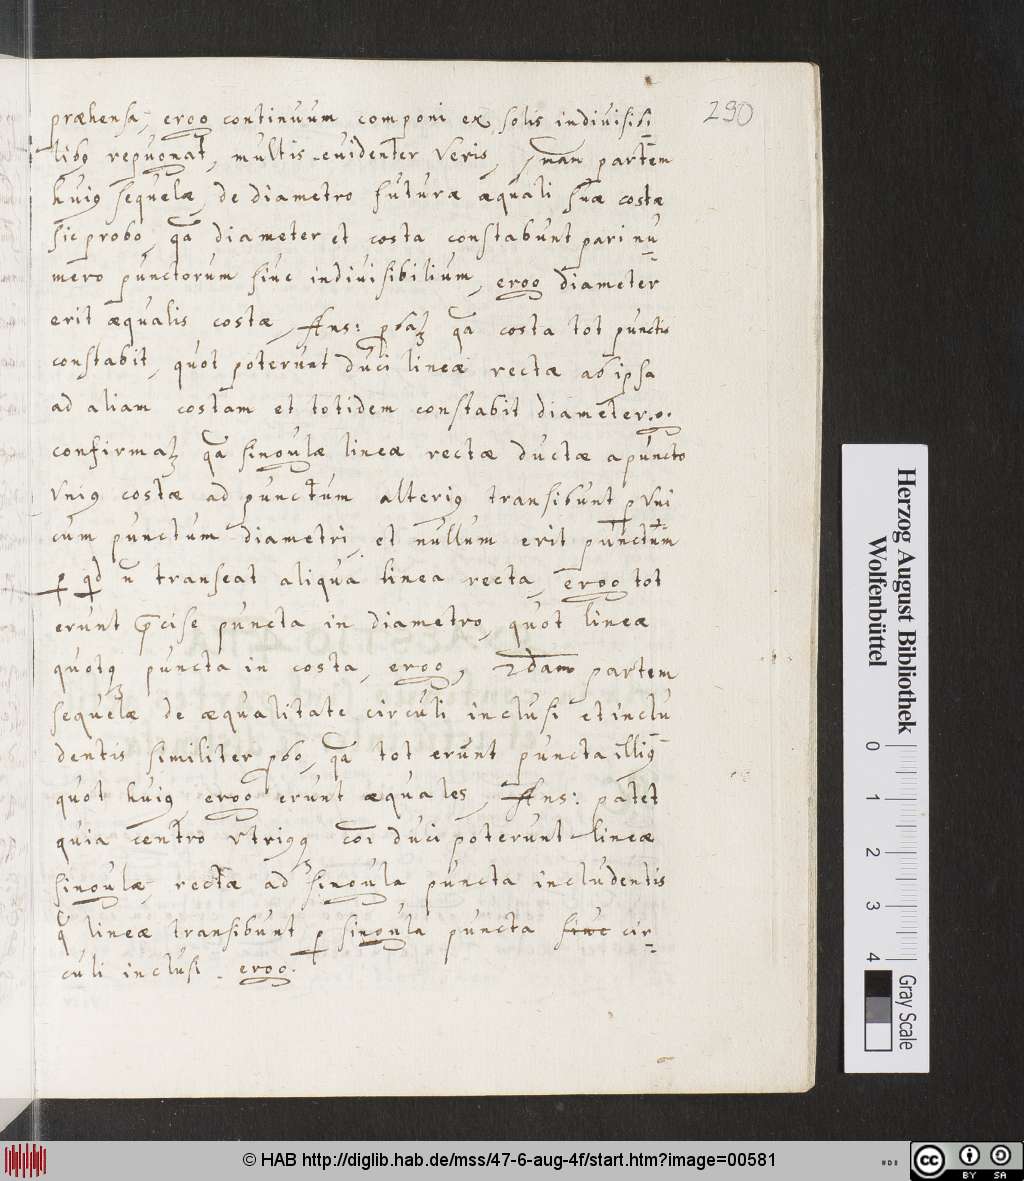 290
præhensa, ergo continuum componi ex solis indiuisibi
libꝯ repugnat, multis euidenter veris, 1mam partem
huiꝯ sequelæ, de diametro futura æquali suæ costæ
sic probo, qa diameter et costa constabunt pari nu
mero punctorum siue indiuisibilium, ergo diameter
erit æqualis costæ, Ans: pbaꝫ qa costa tot punctis
constabit, quot poterunt duci lineæ rectæ ab ipsa
ad aliam costam et totidem constabit diameter.g.
confirmaꝫ qa singulæ lineæ rectæ ductæ a puncto
vniꝯ costæ ad punctum alteriꝯ transibunt ꝑ vni
cum punctum diametri, et nullum erit punctum
ꝑ qd n transeat aliqua linea recta, ergo tot
erunt præcise puncta in diametro, quot lineæ
quotqꝫ puncta in costa, ergo, 2dam partem
sequelæ de æqualitate circuli inclusi et inclu
dentis similiter pbo, qa tot erunt puncta illiꝯ
quot huiꝯ, ergo erunt æquales, Ans: patet
quia centro vtriꝯqꝫ coi duci poterunt lineæ
singulæ, rectæ ad singula puncta includentis
q lineæ transibunt ꝑ singula puncta cir
culi inclusi. ergo.
Herzog August Bibliothek
Wolfenbüttel
0 1 2 3 4
Gray Scale
© HAB http://diglib.hab.de/mss/47-6-aug-4f/start.htm?image=00581
cc BY SA